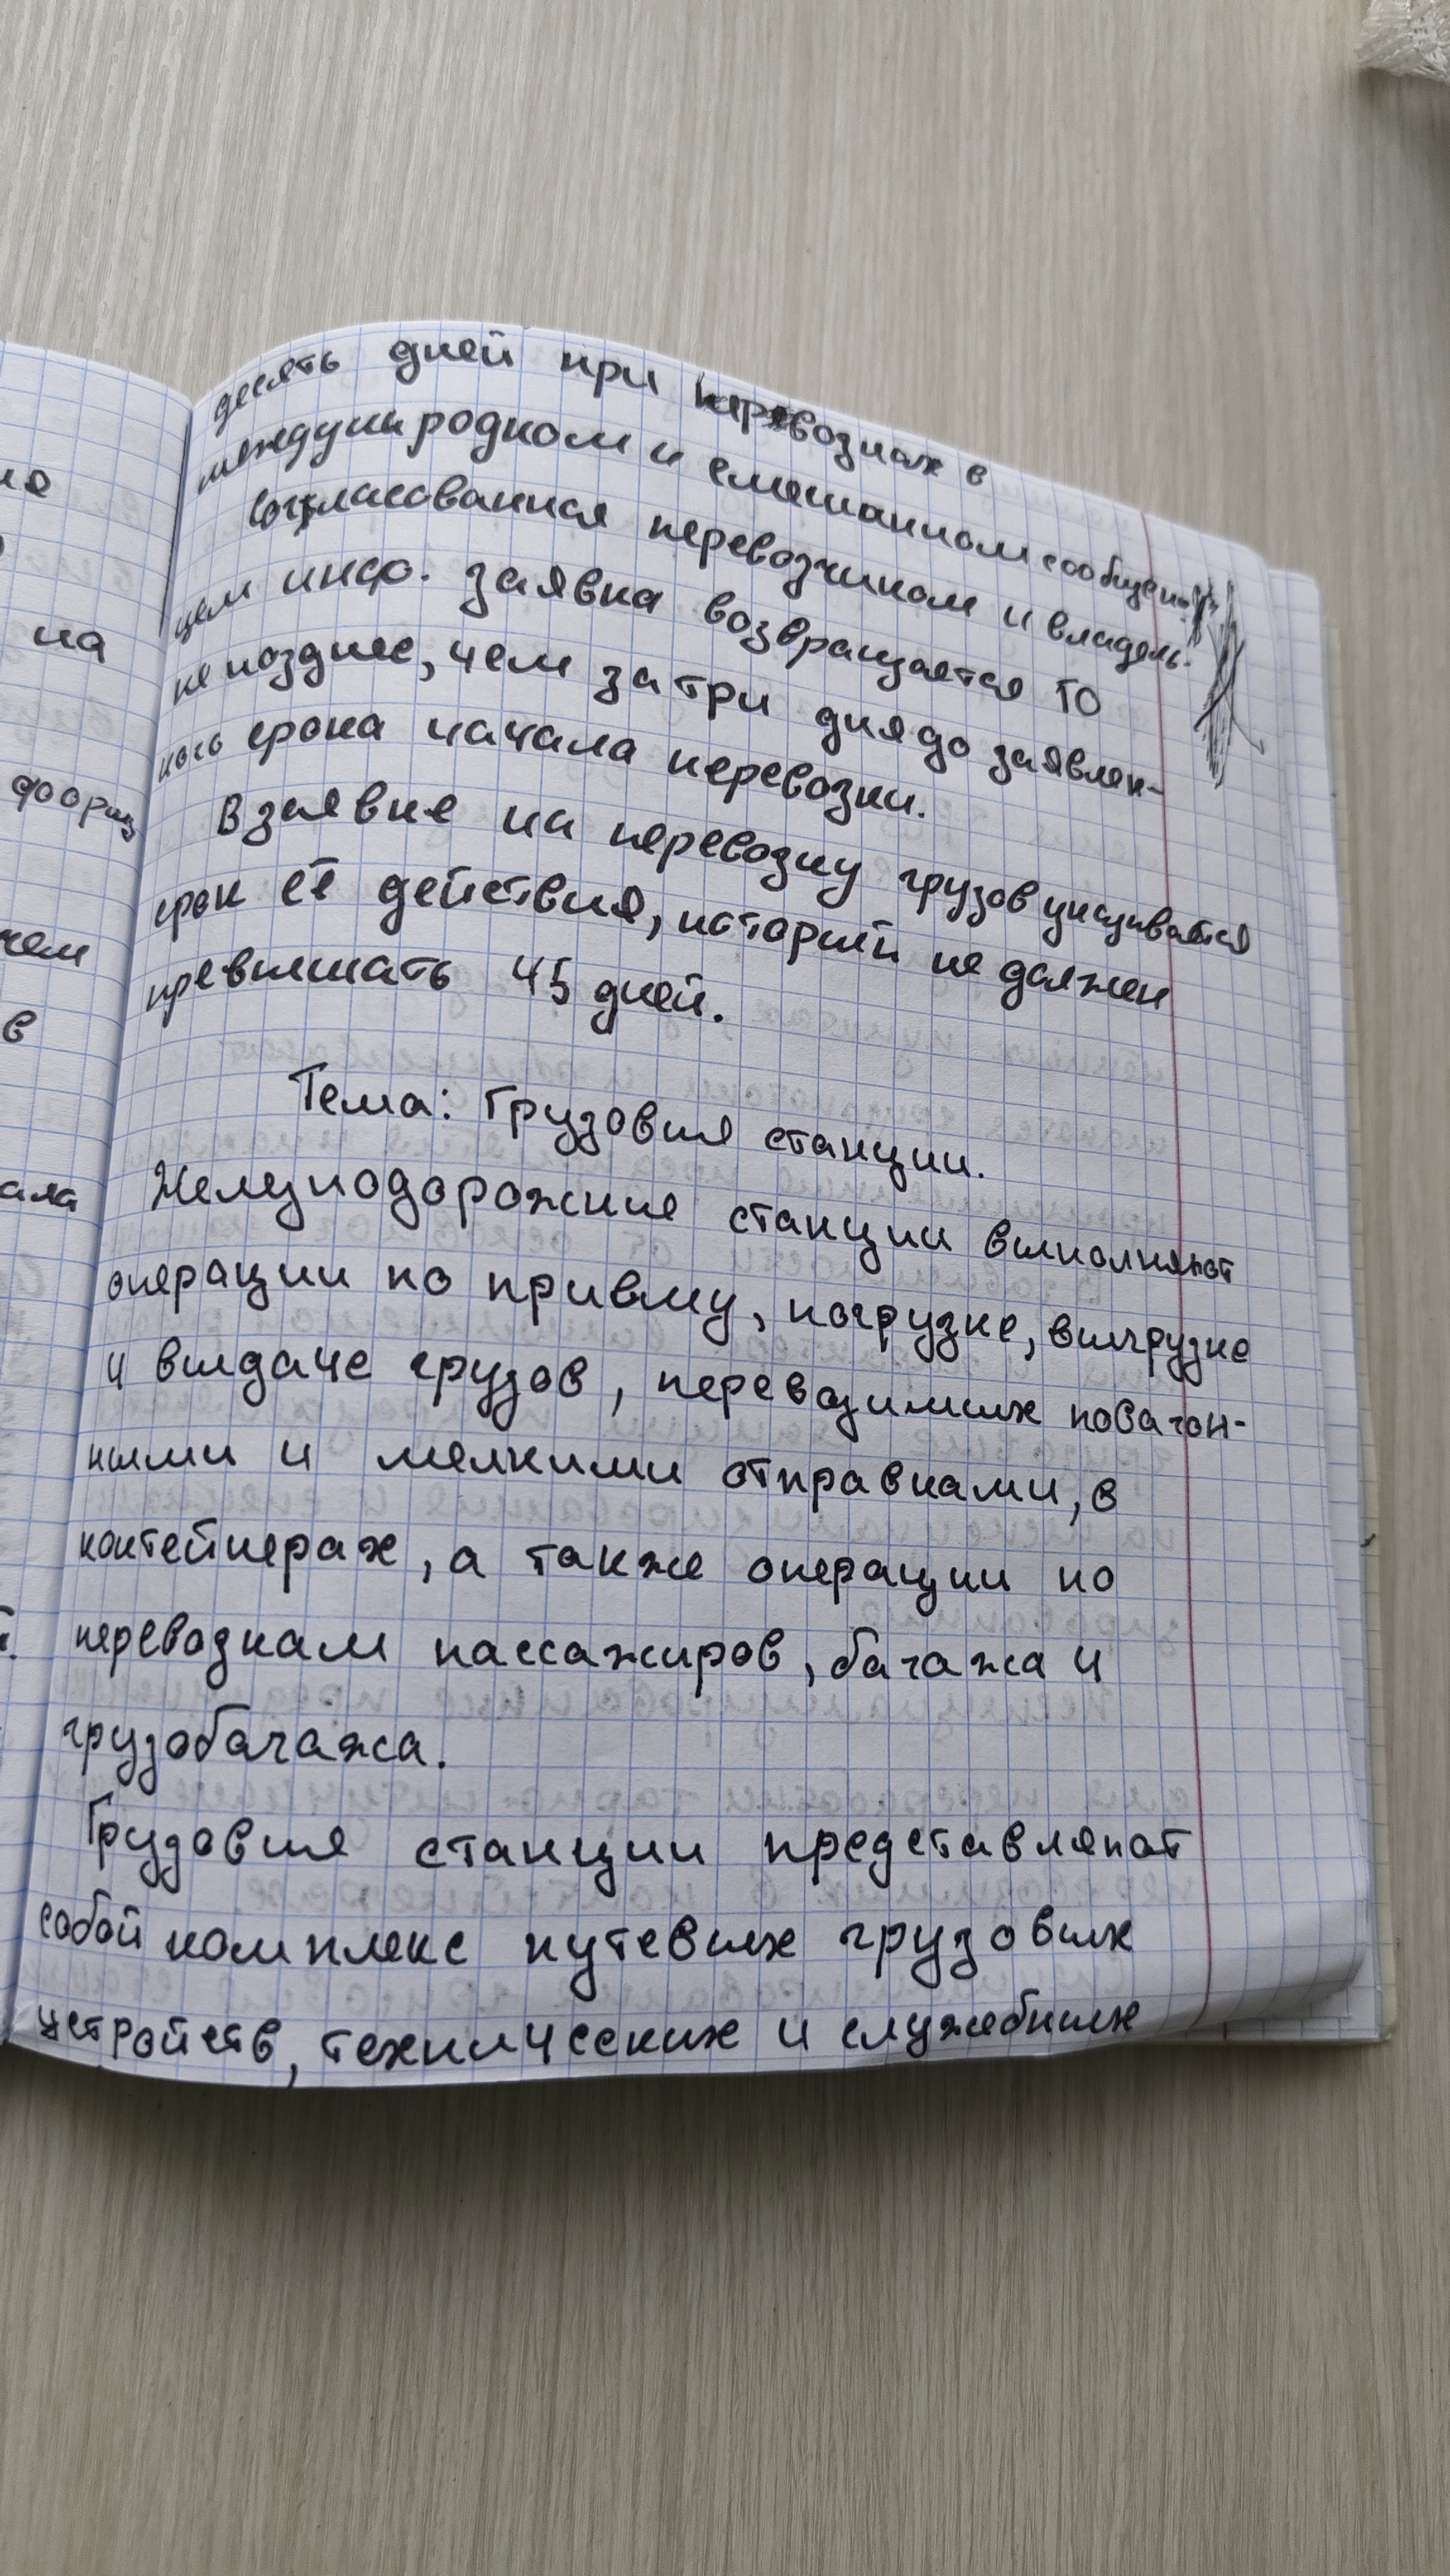 десять дней при перевозках в
международном и смешанном сообщении
Согласованная перевозчиком и владель-
цем инф. заявка возвращается ГО
не позднее, чем за три дня до заявлен-
ного срока начала перевозки.
В заявке на перевозку грузов указывается
срок её действия, который не должен
превышать 45 дней.
Тема: Грузовые станции.
Железнодорожные станции выполняют
операции по приёму, погрузке, выгрузке
и выдаче грузов, перевозимых повагон-
ными и мелкими отправками, в
контейнерах, а также операции по
перевозкам пассажиров, багажа и
грузобагажа.
Грузовые станции представляют
собой комплекс путевых грузовых
устройств, технических и служебных
на
чем
в